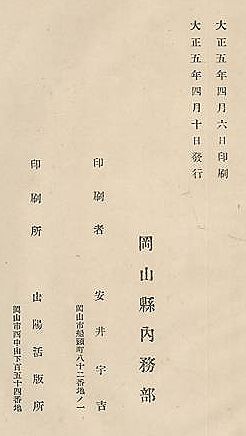 大正五年四月六日印刷
大正五年四月十日發行
岡山縣內務部
印刷者 安井宇吉
岡山市船頭町八十二番地ノ一
印刷所 山陽活版所
岡山市西中山下百五十四番地